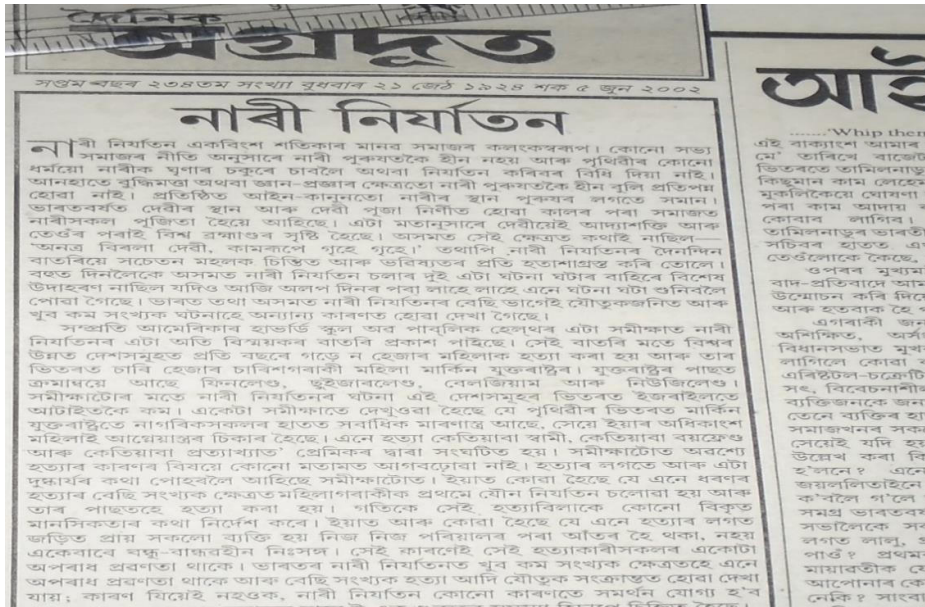 দৈনিক
অগ্ৰদূত
সপ্তম বছৰ ২৩৪তম সংখ্যা বুধবাৰ ২১ জেঠ ১৯২৪ শক ৫ জুন ২০০২
নাৰী নিৰ্যাতন
নাৰী নিৰ্যাতন একবিংশ শতিকাৰ মানৱ সমাজৰ কলংকস্বৰূপ। কোনো সভ্য
সমাজৰ নীতি অনুসাৰে নাৰী পুৰুষতকৈ হীন নহয় আৰু পৃথিৱীৰ কোনো
ধৰ্ময়ো নাৰীক ঘৃণাৰ চকুৰে চাবলৈ অথবা নিৰ্যাতন কৰিবৰ বিধি দিয়া নাই।
আনহাতে বুদ্ধিমত্তা অথবা জ্ঞান-প্ৰজ্ঞাৰ ক্ষেত্ৰতো নাৰী পুৰুষতকৈ হীন বুলি প্ৰতিপন্ন
হোৱা নাই। প্ৰতিষ্ঠিত আইন-কানুনতো নাৰীৰ স্থান পুৰুষৰ লগতে সমান।
ভাৰতবৰ্ষত দেৱীৰ স্থান আৰু দেৱী পূজা নিৰ্ণীত হোৱা কালৰ পৰা সমাজত
নাৰীসকল পূজিতা হৈয়ে আহিছে। এটা মতানুসাৰে দেৱীয়েই আদ্যাশক্তি আৰু
তেওঁৰ পৰাই বিশ্ব ব্ৰহ্মাণ্ডৰ সৃষ্টি হৈছে। অসমত সেই ক্ষেত্ৰত কথাই নাছিল—
‘অন্যত্ৰ বিৰলা দেৱী, কামৰূপে গৃহে গৃহে।’ তথাপি নাৰী নিৰ্যাতনৰ দৈনন্দিন
বাতৰিয়ে সচেতন মহলক চিন্তিত আৰু ভৱিষ্যতৰ প্ৰতি হতাশাগ্ৰস্ত কৰি তোলে।
বহুত দিনলৈকে অসমত নাৰী নিৰ্যাতন চলাৰ দুই এটা ঘটনা ঘটাৰ বাহিৰে বিশেষ
উদাহৰণ নাছিল যদিও আজি অলপ দিনৰ পৰা লাহে লাহে এনে ঘটনা ঘটা শুনিবলৈ
পোৱা গৈছে। ভাৰত তথা অসমত নাৰী নিৰ্যাতনৰ বেছি ভাগেই যৌতুকজনিত আৰু
খুব কম সংখ্যক ঘটনাহে অন্যান্য কাৰণত হোৱা দেখা গৈছে।
সম্প্ৰতি আমেৰিকাৰ হাভাৰ্ড স্কুল অৱ পাব্লিক হেল্থৰ এটা সমীক্ষাত নাৰী
নিৰ্যাতনৰ এটা অতি বিস্ময়কৰ বাতৰি প্ৰকাশ পাইছে। সেই বাতৰি মতে বিশ্বৰ
উন্নত দেশসমূহত প্ৰতি বছৰে গড়ে ন হেজাৰ মহিলাক হত্যা কৰা হয় আৰু তাৰ
ভিতৰত চাৰি হেজাৰ চাৰিশগৰাকী মহিলা মাৰ্কিন যুক্তৰাষ্ট্ৰৰ। যুক্তৰাষ্ট্ৰৰ পাছত
ক্ৰমান্বয়ে আছে ফিনলেণ্ড, ছুইজাৰলেণ্ড, বেলজিয়াম আৰু নিউজিলেণ্ড।
সমীক্ষাটোৰ মতে নাৰী নিৰ্যাতনৰ ঘটনা এই দেশসমূহৰ ভিতৰত ইজৰাইলতে
আটাইতকৈ কম। একেটা সমীক্ষাতে দেখুওৱা হৈছে যে পৃথিৱীৰ ভিতৰত মাৰ্কিন
যুক্তৰাষ্ট্ৰতে নাগৰিকসকলৰ হাতত সৰ্বাধিক মাৰণাস্ত্ৰ আছে, সেয়ে ইয়াৰ অধিকাংশ
মহিলাই আগ্নেয়াস্ত্ৰৰ চিকাৰ হৈছে। এনে হত্যা কেতিয়াবা স্বামী, কেতিয়াবা বয়ফ্ৰেণ্ড
আৰু কেতিয়াবা প্ৰত্যাখ্যাত’ প্ৰেমিকৰ দ্বাৰা সংঘটিত হয়। সমীক্ষাটোত অৱশ্যে
হত্যাৰ কাৰণৰ বিষয়ে কোনো মতামত আগবঢ়োৱা নাই। হত্যাৰ লগতে আৰু এটা
দুষ্কাৰ্যৰ কথা পোহৰলৈ আহিছে সমীক্ষাটোত। ইয়াত কোৱা হৈছে যে এনে ধৰণৰ
হত্যাৰ বেছি সংখ্যক ক্ষেত্ৰত মহিলাগৰাকীক প্ৰথমে যৌন নিৰ্যাতন চলোৱা হয় আৰু
তাৰ পাছতহে হত্যা কৰা হয়। গতিকে সেই হত্যাবিলাকে কোনো বিকৃত
মানসিকতাৰ কথা নিৰ্দেশ কৰে। ইয়াত আৰু কোৱা হৈছে যে এনে হত্যাৰ লগত
জড়িত প্ৰায় সকলো ব্যক্তি হয় নিজ নিজ পৰিয়ালৰ পৰা আঁতৰ হৈ থকা, নহয়
একেবাৰে বন্ধু-বান্ধৱহীন নিঃসঙ্গ। সেই কাৰণেই সেই হত্যাকাৰীসকলৰ একোটা
অপৰাধ প্ৰৱণতা থাকে। ভাৰতৰ নাৰী নিৰ্যাতনত খুব কম সংখ্যক ক্ষেত্ৰতহে এনে
অপৰাধ প্ৰৱণতা থাকে আৰু বেছি সংখ্যক হত্যা আদি যৌতুক সংক্ৰান্তত হোৱা দেখা
যায়; কাৰণ যিয়েই নহওক, নাৰী নিৰ্যাতন কোনো কাৰণতে সমৰ্থন যোগ্য হ’ব
......‘Whip them
এই বাক্যাংশ আমাৰ
মে’ তাৰিখে বাজেট
ভিতৰতে তামিলনাডু
কিছুমান কাম লেহেম
মুকলিকৈয়ে ঘোষণা
পৰা কাম আদায়
কোবাব লাগিব।
তামিলনাডুৰ ভাৰতী
সচিবৰ হাতত
তেওঁলোকে কৈছে,
ওপৰৰ মুখ্যম
বাদ-প্ৰতিবাদে আম
উন্মোচন কৰি দিছে
আৰু হতবাক হৈ
এগৰাকী জন
অশিক্ষিত, অৰ্স
বিধানসভাত মুখ
লাগিলে কোৱা
এৰিষ্টটল-চক্ৰেটি
সৎ, বিবেচনাশীল
ব্যক্তিজনকে জন
তেনে ব্যক্তিৰ হা
সমাজখনৰ সক
সেয়েই যদি হয়
উল্লেখ কৰা বি
হ’লনে? এনে
জয়ললিতাইনে
ক’ৰবলৈ গ’লে
সমগ্ৰ ভাৰতবৰ্ষ
সভালৈকে স
লগত লালু,
পাওঁ? প্ৰথম
মায়াৱতীক যে
আপোনাৰ কে
নেকি? সাংবা